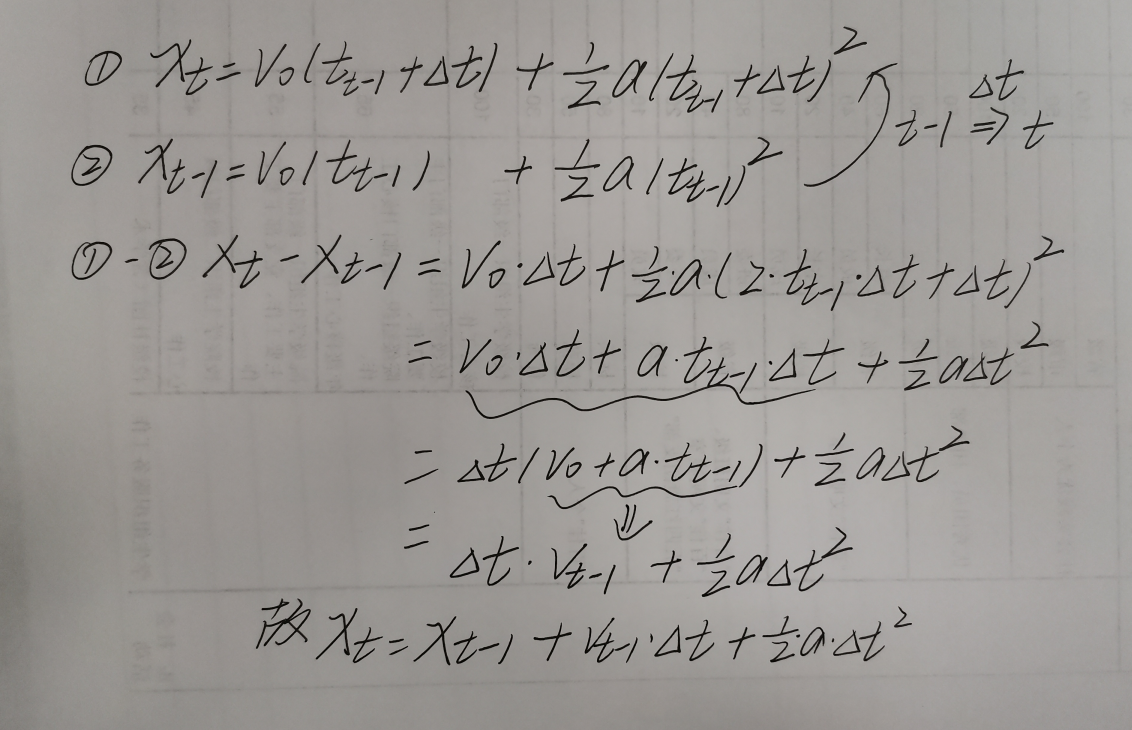 ① x_t = v_0(t_{t-1} + Δt) + ½a(t_{t-1} + Δt)²
Δt
t-1 ⇒ t
② x_{t-1} = v_0(t_{t-1}) + ½a(t_{t-1})²
① - ② x_t - x_{t-1} = v_0·Δt + ½·a·(2·t_{t-1}·Δt + Δt)²
= v_0·Δt + a·t_{t-1}·Δt + ½aΔt²
= Δt(v_0 + a·t_{t-1}) + ½aΔt²
⇓
= Δt·v_{t-1} + ½aΔt²
故 x_t = x_{t-1} + v_{t-1}·Δt + ½·a·Δt²